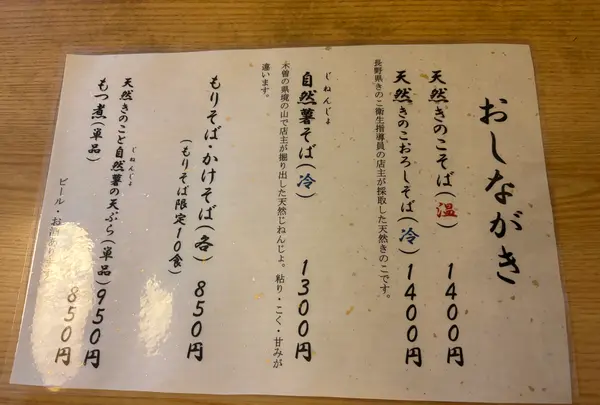 おしながき
天然きのこそば(温) 1400円
天然きのこおろしそば(冷) 1400円
長野県きのこ衛生指導員の店主が採取した天然きのこです。
じねんじょ
自然薯そば(冷) 1300円
木曽の県境の山で店主が掘り出した天然じねんじょ。粘り・こく・甘みが
違います。
もりそば・かけそば(各) 850円
(もりそば限定10食)
じねんじょ
天然きのこと自然薯の天ぷら(単品) 950円
もつ煮(単品) 850円
ビール・お酒